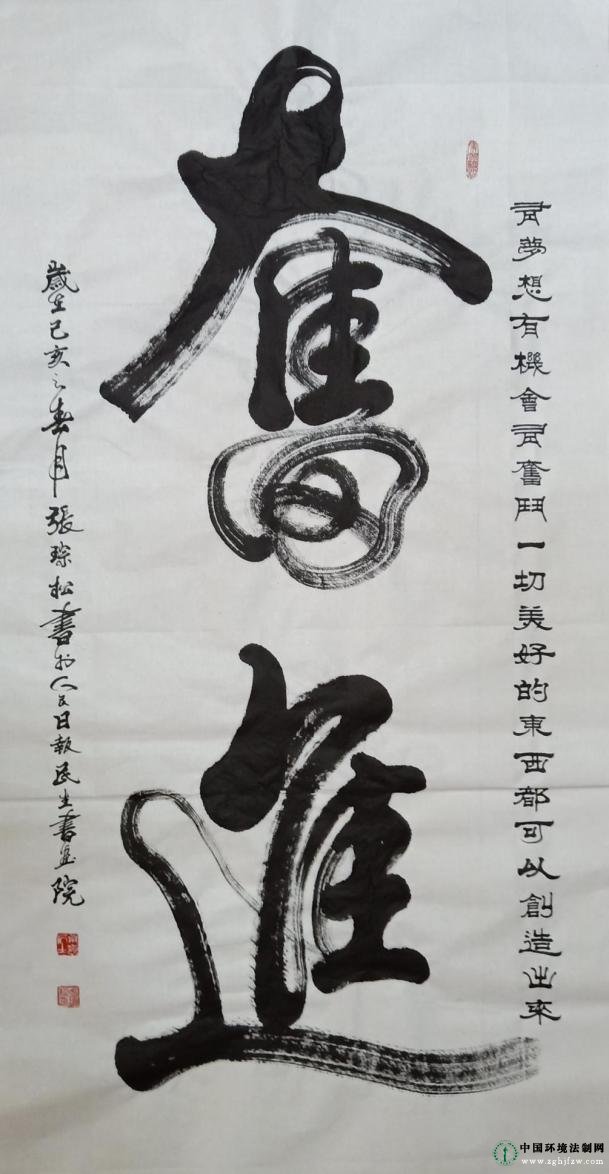 有夢想有機會有奮鬥一切美好的東西都可以創造出來
奮進
歲在己亥之春月張琮松書於人民日報民生書畫院
中国环境法制网
www.zghjfzw.com